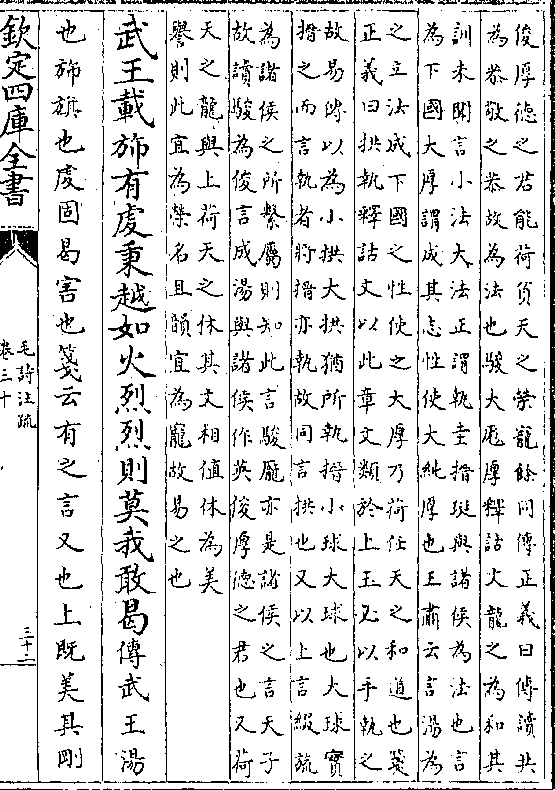 俊厚德之君能荷負天之榮寵餘同傳正義曰傳讀共
為恭敬之恭故為法也駿大厖厚釋詁文龍之為和其
訓未聞言小法大法正謂執圭搢珽與諸侯為法也言
為下國大厚謂成其志性使大純厚也王肅云言湯為
之立法成下國之性使之大厚乃荷任天之和道也箋
正義曰拱執釋詁文以此章文類於上玉必以手執之
故易傳以為小拱大拱猶所執搢小球大球也大球實
搢之而言執者將搢亦執故同言拱也又以上言綴旒
為諸侯之所繫屬則知此言駿厖亦是諸侯之言天子
故讀駿為俊言成湯與諸侯作英俊厚德之君也又荷
天之龍與上荷天之休其文相值休為美
譽則此宜為榮名且韻宜為寵故易之也
武王載斾有虔秉越如火烈烈則莫我敢曷傳武王湯
也斾旗也虔固曷害也箋云有之言又也上既美其剛
欽定四庫全書
毛詩注疏
卷三十
三十二